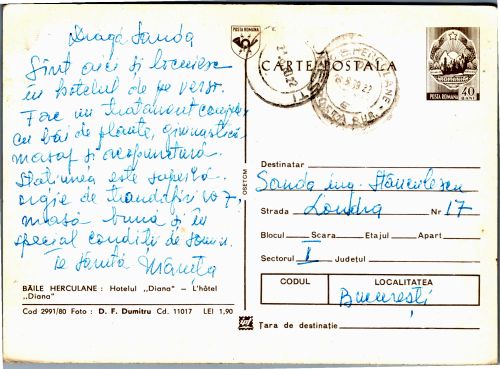 Dragă Sanda
Sînt aici și locuiesc
în hotelul de pe verso.
Fac un tratament complex
cu băi de plante, gimnastică
masaj și acupunctură.
Stațiunea este superbă
orgie de trandafiri
masă bună și în
special condiții de somn.
Te sărută
POSTA ROMANA
CARTE POSTALA
POSTA ROMANA 40
BANI
OSETCM
Destinatar
Sanda ing. Stănculescu
Strada Londra Nr 17
Blocul Scara Etajul Apart
Sectorul I Județul
CODUL LOCALITATEA
București
Țara de destinație
BĂILE HERCULANE : Hotelul „Diana” – L'hôtel
„Diana”
Cod 2991/80 Foto : D. F. Dumitru Cd. 11017 LEI 1,90